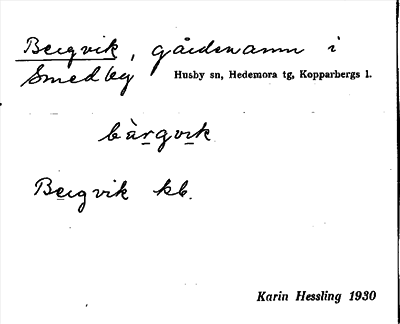 Bergvik, gårdsnamn i
Smedby Husby sn, Hedemora tg, Kopparbergs l.
bàrgvik
Bergvik kb.
Karin Hessling 1930